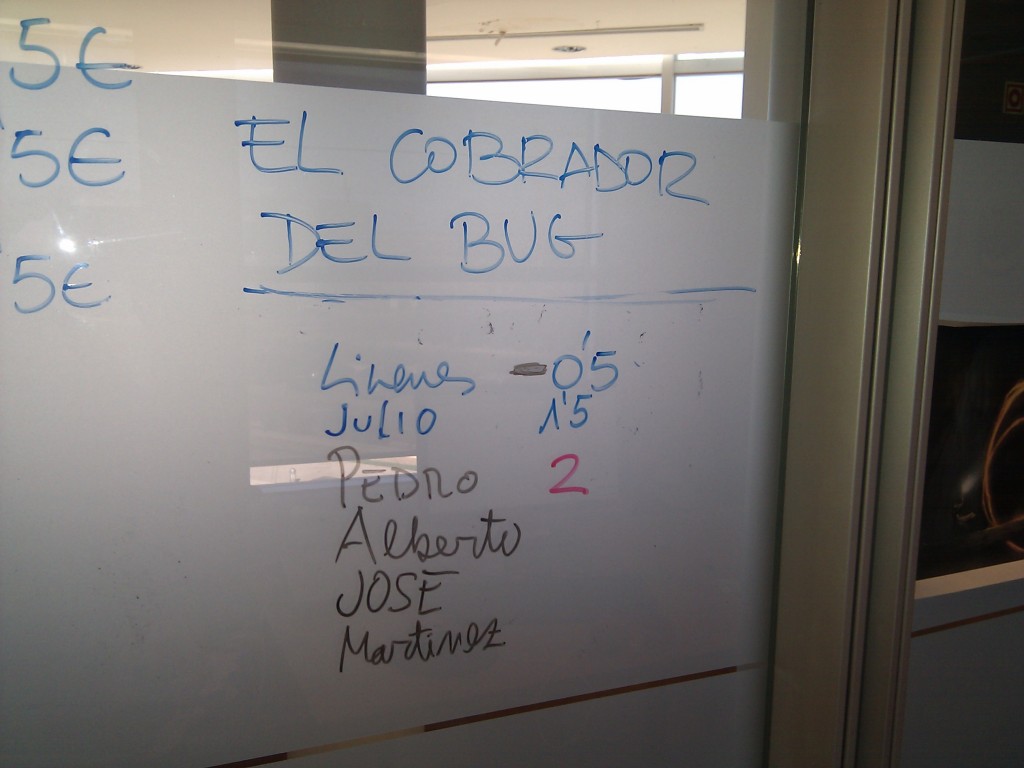 5€
5€
5€
EL COBRADOR
DEL BUG
Linenes 0'5
JULIO 1'5
PEDRO 2
Alberto
JOSE
Martinez